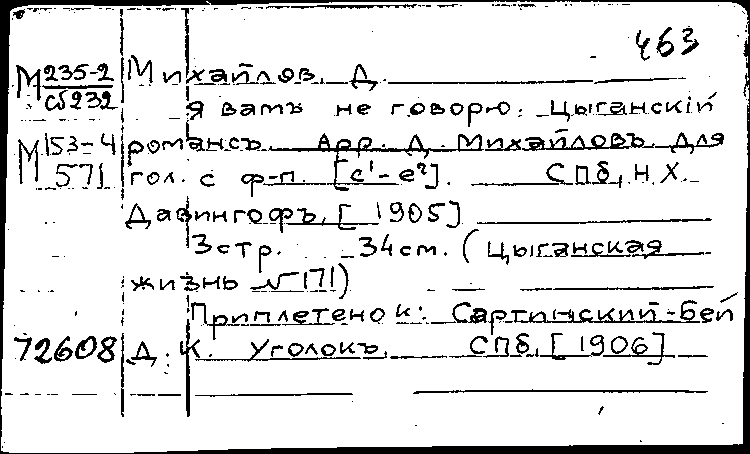 463
М 235-2 / сб232 Михайлов, Д.
Я вамъ не говорю: Цыганскій
М 153-4 / 571 романсъ. Арр. Д. Михайловъ. Для
гол. с ф-п. [c¹-e²]. СПб, Н.Х.
Давингофъ, [1905]
3 стр. 34 см. (Цыганская
жизнь №171)
Приплетено к: Сартинский-Бей
72608 Д. К. Уголокъ. СПб, [1906]